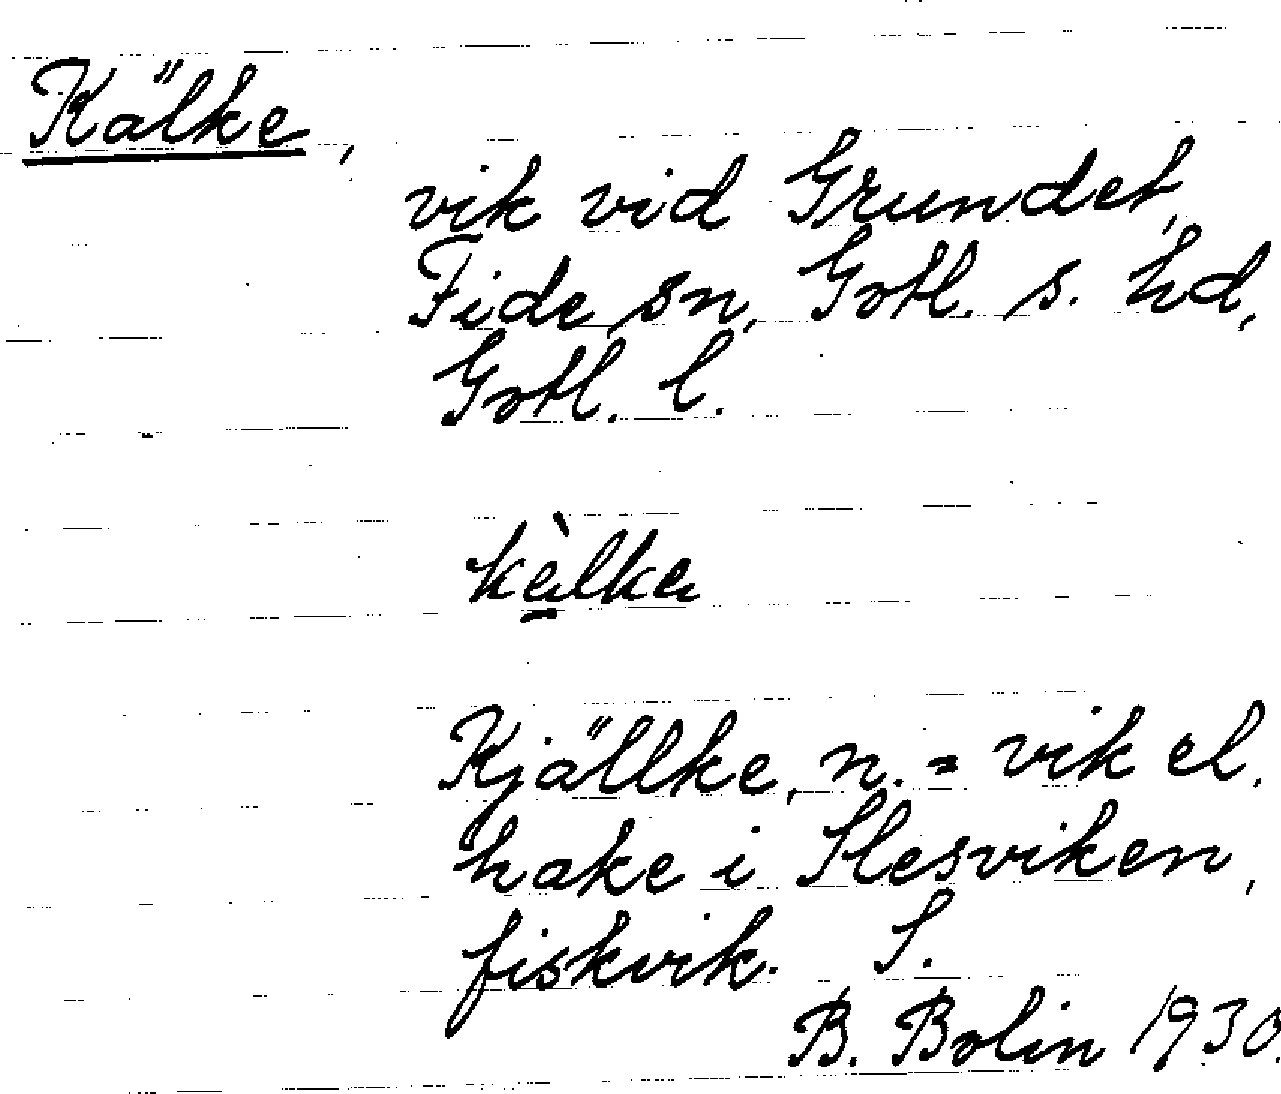 Kälke,
vik vid Grundet,
Fide sn, Gotl. s. hd,
Gotl. l.
kèlke
Kjällke, n. = vik el.
hake i Slesviken,
fiskvik. S.
B. Bolin 1930.